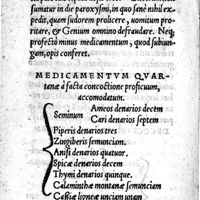 sumatur in die paroxysmi, in quo sanè nihil ex-
pedit, quam sudorem prolicere, uomitum pro-
ritare, & Genium omnino defraudare. Neq;
profectò minus medicamentum, quod subiun-
gam, opis conferet.
MEDICAMENTVM QVAR-
tanæ à facta concoctione proficuum,
accomodatum.
Ameos denarios decem
Seminum
Cari denarios septem
Piperis denarios tres
Zingiberis semunciam.
Anisi denarios quatuor.
Spicæ denarios decem
Thymi denarios quinque.
Calaminthæ montanæ semunciam
Cassiæ ligneæ unciam unam